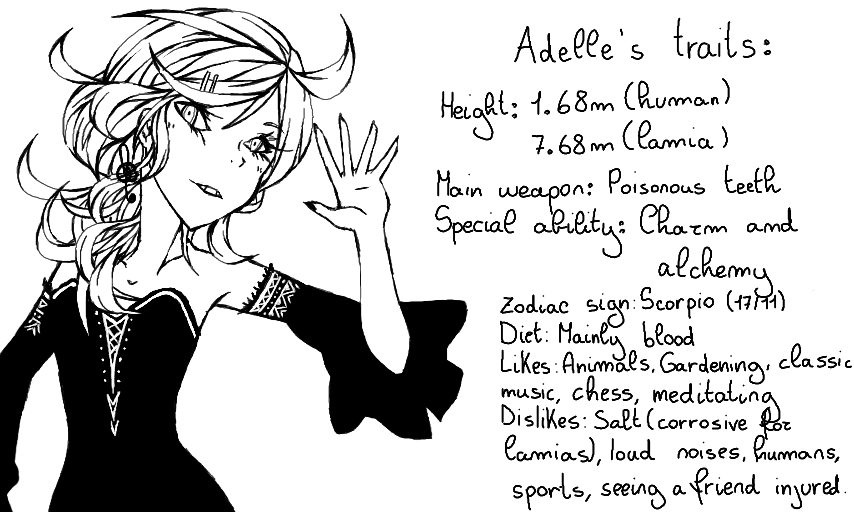 Adelle's traits:
Height: 1.68m (human)
7.68m (lamia)
Main weapon: Poisonous teeth
Special ability: Charm and
alchemy
Zodiac sign: Scorpio (17/11)
Diet: Mainly blood
Likes: Animals, Gardening, classic
music, chess, meditating
Dislikes: Salt (corrosive for
lamias), loud noises, humans,
sports, seeing a friend injured.